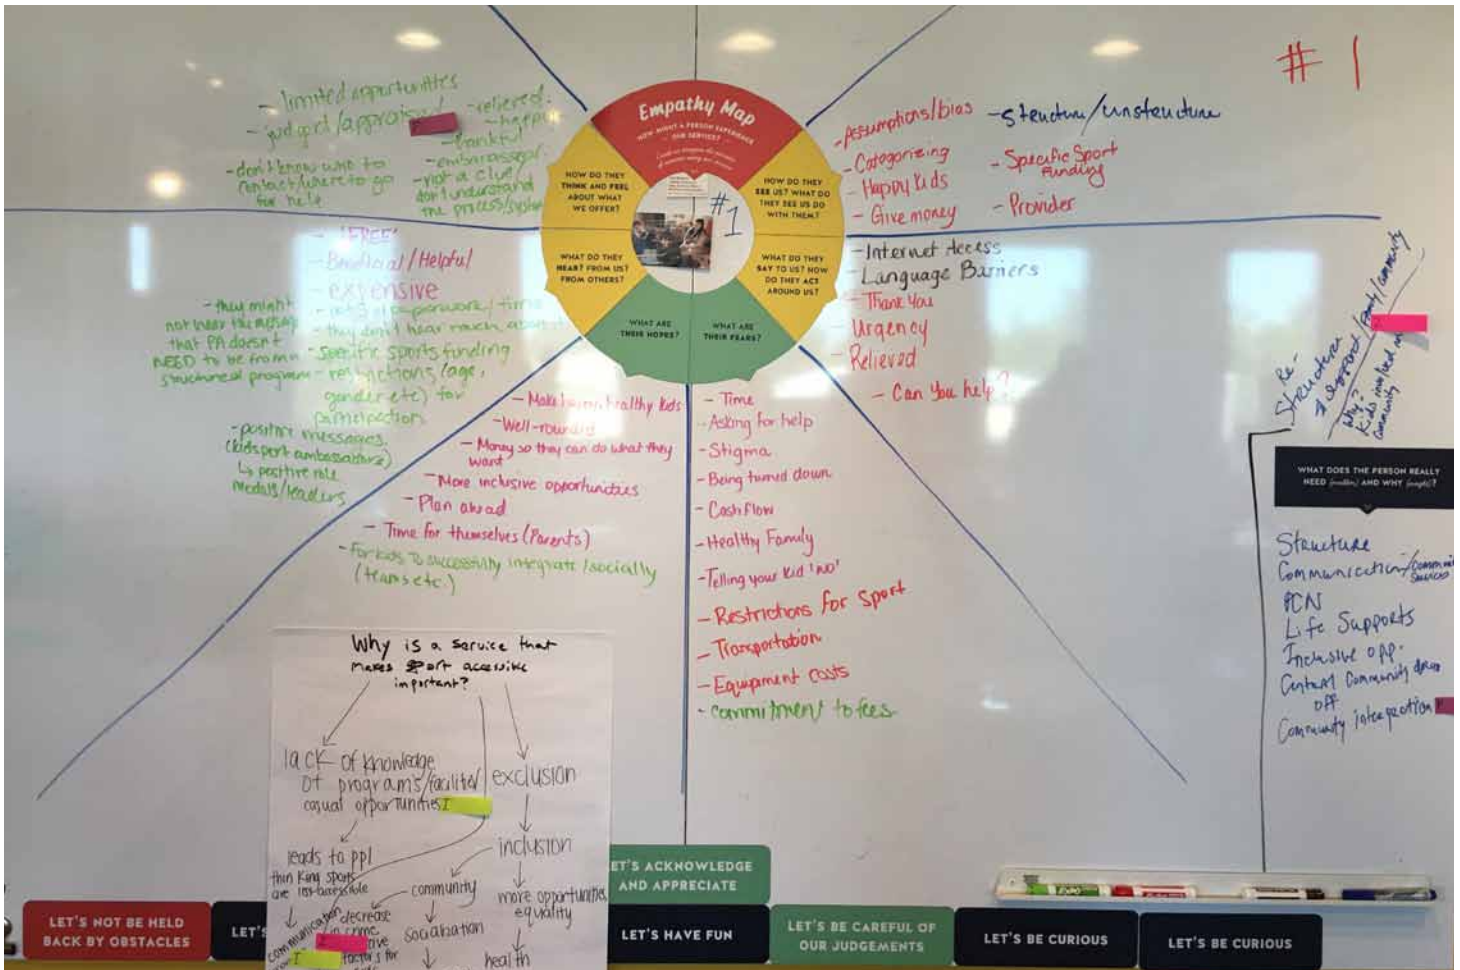 #1
Empathy Map
HOW MIGHT A PERSON EXPERIENCE
OUR SERVICE?
HOW DO THEY
THINK AND FEEL
ABOUT WHAT
WE OFFER?
HOW DO THEY
SEE US? WHAT DO
THEY SEE US DO
WITH THEM?
WHAT DO THEY
HEAR? FROM US?
FROM OTHERS?
WHAT DO THEY
SAY TO US? HOW
DO THEY ACT
AROUND US?
WHAT ARE
THEIR HOPES?
WHAT ARE
THEIR FEARS?
#1
- limited opportunities
- judged/appraisal
- don't know who to
contact/where to go
for help
- relieved
- happy
- thankful
- embarassed/
- not a clue
don't understand
the process/system
- Assumptions/bias
- Categorizing
- Happy Kids
- Give money
- Structure/unstructure
- Specific Sport
Funding
- Provider
- "FREE"
- Beneficial/Helpful
- expensive
- lots of paperwork/time
- they don't hear much about it
- specific sports funding
- restrictions (age,
gender etc) for
participation
- they might
not hear the message
that PA doesn't
NEED to be from a
structured program
- positive messages.
(kidsport ambassadors)
↳ positive role
models/leaders
- Internet Access
- Language Barriers
- Thank You
- Urgency
- Relieved
- Can you help?
- Make happy, healthy kids
- Well-rounded
- Money so they can do what they
want
- More inclusive opportunities
- Plan ahead
- Time for themselves (Parents)
- For kids to successfully integrate/socially
(teams etc.)
- Time
- Asking for help
- Stigma
- Being turned down
- Cash flow
- Healthy Family
- Telling your kid 'no'
- Restrictions for Sport
- Transportation
- Equipment costs
- Commitment to fees
Re-
Structured
Support/Family/Community
Why?
Kids involved in
community
WHAT DOES THE PERSON REALLY
NEED (problem) AND WHY (insight)?
Structure
Communication/
PCN
Life Supports
Inclusive opp.
Central Community drop
off
Community integration
Why is a service that
makes sport accessible
important?
lack of knowledge
of programs/facilities/
casual opportunities
exclusion
leads to ppl
thinking sports
are inaccessible
inclusion
community
more opportunities
equality
communication
decrease
in crime
socialization
factors for
health
LET'S NOT BE HELD
BACK BY OBSTACLES
LET'S
LET'S ACKNOWLEDGE
AND APPRECIATE
LET'S HAVE FUN
LET'S BE CAREFUL OF
OUR JUDGEMENTS
LET'S BE CURIOUS
LET'S BE CURIOUS
EXPO